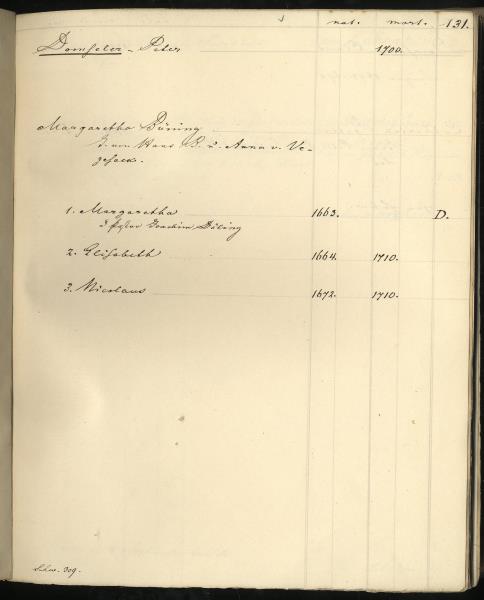 nat. mort. 131.
Domseler - Peter 1700.
Margaretha Büning
T. von Hans B. u. Anna v. Ve-
gesack.
1. Margaretha 1663. D.
Joachim Düling
2. Elisabeth 1664. 1710.
3. Nicolaus 1672. 1710.
Schw. 309.